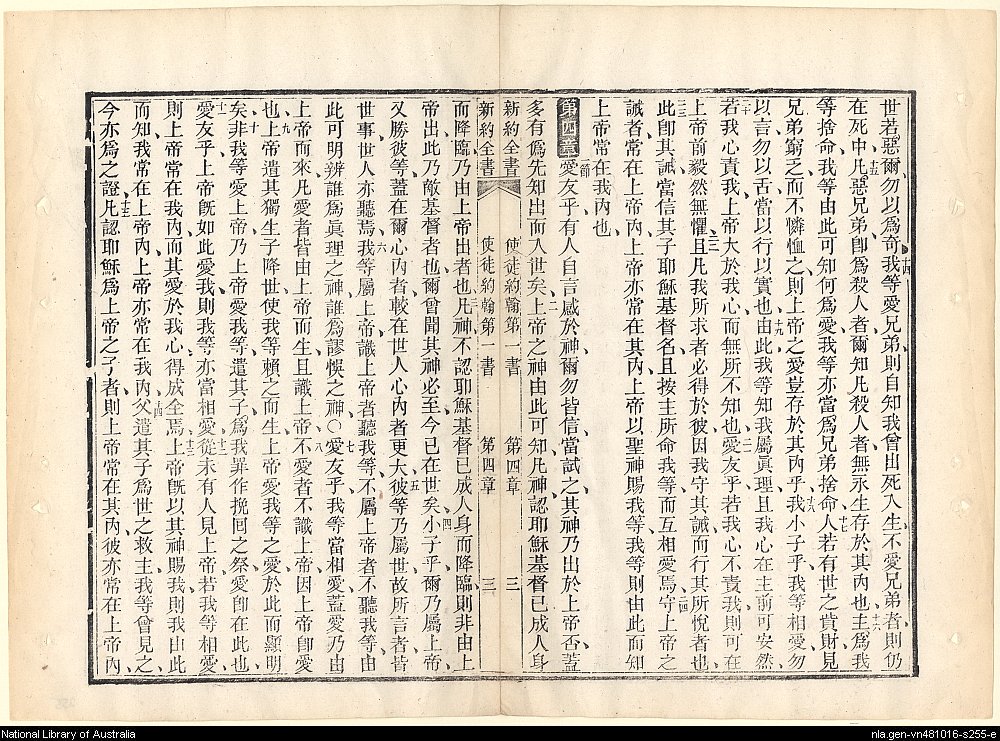 世若惡爾勿以爲奇十四我等愛兄弟則自知我曾出死入生不愛兄弟者則仍
在死中十五凡惡兄弟卽爲殺人者爾知凡殺人者無永生存於其內也十六主爲我
等捨命我等由此可知何爲愛我等亦當爲兄弟捨命十七人若有世之貲財見
兄弟窮乏而不憐恤之則上帝之愛豈存於其內乎十八我小子乎我等相愛勿
以言勿以舌當以行以實也十九由此我等知我屬眞理且我心在主前可安然
二十若我心責我上帝大於我心而無所不知也二一愛友乎若我心不責我則可在
上帝前毅然無懼二二且凡我所求者必得於彼因我守其誡而行其所悅者也
二三此卽其誡當信其子耶穌基督名且按主所命我等而互相愛焉二四守上帝之
誡者常在上帝內上帝亦常在其內上帝以聖神賜我等我等則由此而知
上帝常在我內也
第四章一節愛友乎有人自言感於神爾勿皆信當試之其神乃出於上帝否蓋
多有僞先知出而入世矣二上帝之神由此可知凡神認耶穌基督已成人身
新約全書 使徒約翰第一書 第四章 三
新約全書 使徒約翰第一書 第四章 三
而降臨乃由上帝出者也三凡神不認耶穌基督已成人身而降臨則非由上
帝出此乃敵基督者也爾曾聞其神必至今已在世矣四小子乎爾乃屬上帝
又勝彼等蓋在爾心內者較在世人心內者更大五彼等乃屬世故所言者皆
世事世人亦聽焉六我等屬上帝識上帝者聽我等不屬上帝者不聽我等由
此可明辨誰爲眞理之神誰爲謬悞之神○七愛友乎我等當相愛蓋愛乃由
上帝而來凡愛者皆由上帝而生且識上帝八不愛者不識上帝因上帝卽愛
也九上帝遣其獨生子降世使我等賴之而生上帝愛我等之愛於此而顯明
矣十非我等愛上帝乃上帝愛我等遣其子爲我罪作挽回之祭愛卽在此也
十一愛友乎上帝旣如此愛我則我等亦當相愛十二從未有人見上帝若我等相愛
則上帝常在我內而其愛於我心得成全焉十三上帝旣以其神賜我則我由此
而知我常在上帝內上帝亦常在我內十四父遣其子爲世之救主我等曾見之
今亦爲之證十五凡認耶穌爲上帝之子者則上帝常在其內彼亦常在上帝內
National Library of Australia
nla.gen-vn481016-s255-e